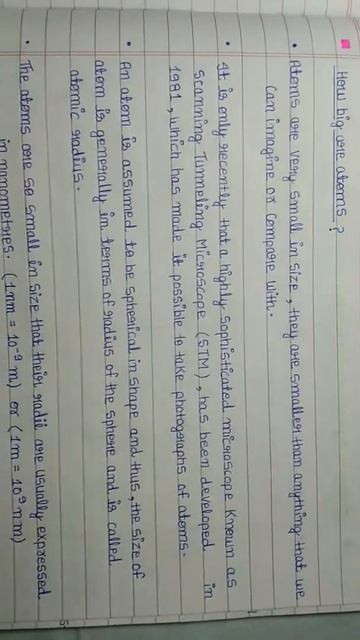 How big are atoms?
• Atoms are very small in size, they are smaller than anything that we
can imagine or compare with.
• It is only recently that a highly sophisticated microscope known as
Scanning Tunneling Microscope (STM), has been developed in
1981, which has made it possible to take photographs of atoms.
• An atom is assumed to be spherical in shape and thus, the size of
atom is generally in terms of radius of the sphere and is called
atomic radius.
• The atoms are so small in size that their radii are usually expressed
in nanometres. (1nm = 10⁻⁹ m) or (1m = 10⁹ nm)